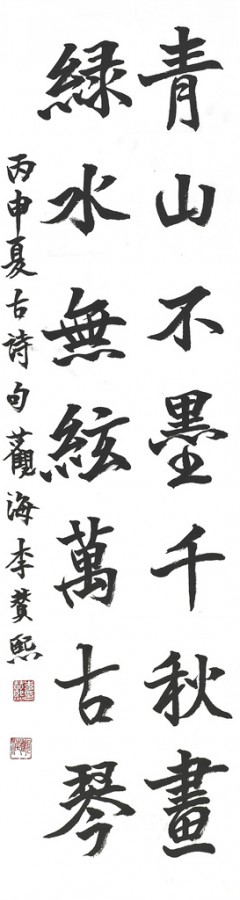 青山不墨千秋畫
綠水無絃萬古琴
丙申夏古詩句觀海李賛熙